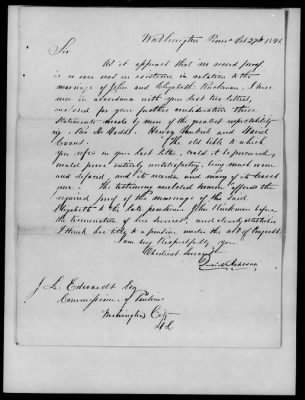 Washington Penna Oct 27th 1846
Sir
As it appears that no record proof
is or ever was in existence in relation to the
marriage of John and Elizabeth Ruckman. I have
now in accordance with your last two letters,
enclosed for your further consideration three
statements made by men of the greatest respectability
viz. Rev Dr Dodd. Henry and David
Evans. If the old bible to which
you refer in your last letter could it be procured,
would prove entirely unsatisfactory, being much worn
and defaced, and its records and many of its leaves
gone. The testimony enclosed however affords the
required proof of the marriage of the said
Elizabeth to the late pensioner John Ruckman before
the termination of his service, and clearly establishes
I think her title to a pension under the act of Congress
I am very Respectfully yours
Obedient Servant
David
J. L. Edwards Esq
Commissioner of Pensions
Washington City
D.C.